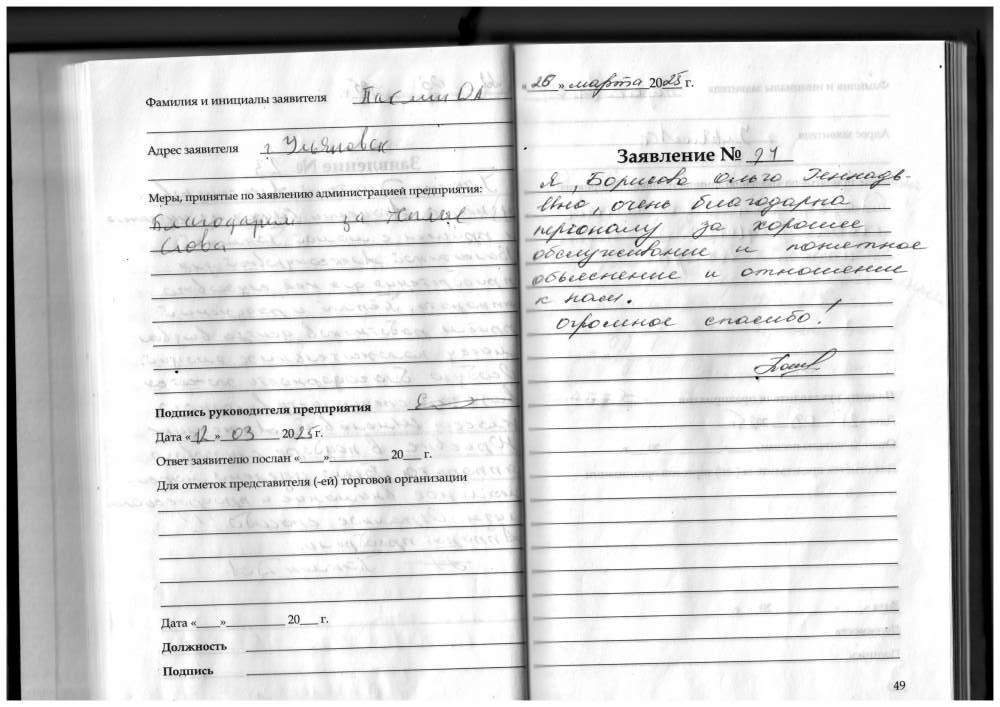 Фамилия и инициалы заявителя
Адрес заявителя г Ульяновск
Меры, принятые по заявлению администрацией предприятия:
Благодарим за тёплые
слова
Подпись руководителя предприятия
Дата «12» 03 2025 г.
Ответ заявителю послан «___»_________ 20___ г.
Для отметок представителя (-ей) торговой организации
Дата «___»_________ 20___ г.
Должность
Подпись
марта 2025 г.
Заявление №
Я, Борисова Ольга Геннадь-
евна, очень благодарна
персоналу за хорошее
обслуживание и понятное
объяснение и отношение
к нам.
Огромное спасибо!
49